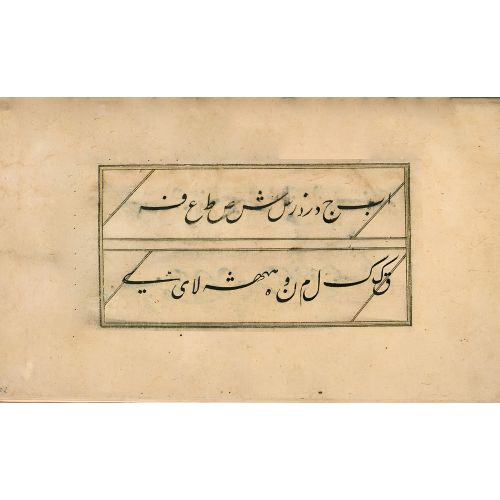 ا ب ج د ر ذ ر س ش ص ط ع ف
ق ک ک ل م ن و ه ه لا ی ے